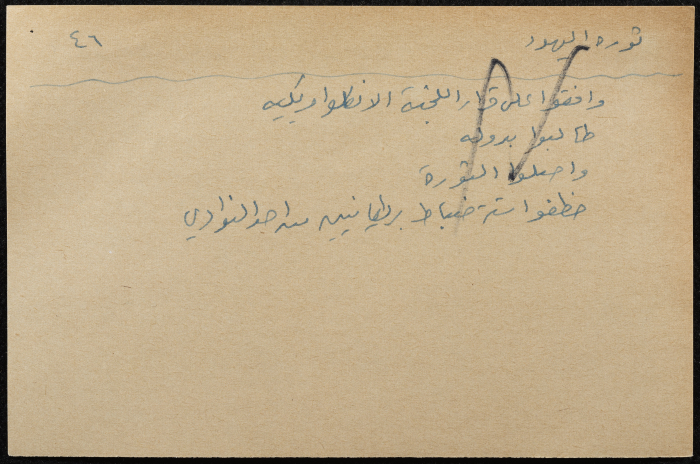 ثورة اليهود ٤٦
وافقوا على قرار اللجنة الانكلوامريكيه
طالبوا بدوله
واصلوا الثورة
خطفوا ستة ضباط بريطانيين من احد النوادي